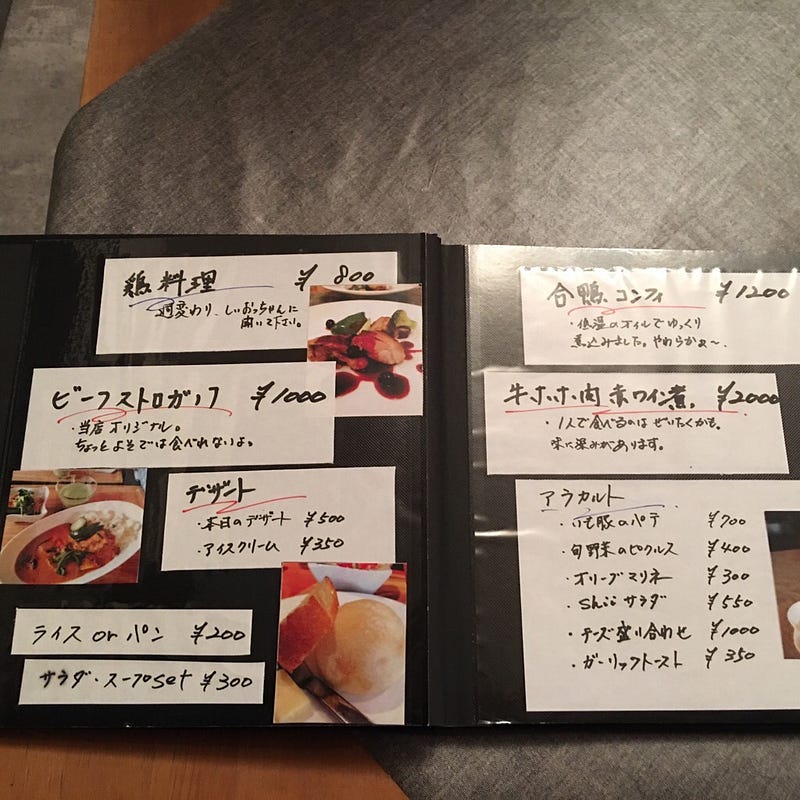 鶏料理 ¥800
週変わり、しいおっちゃんに
聞いて下さい。
ビーフストロガノフ ¥1000
・当店オリジナル。
ちょっとよそでは食べれないよ。
デザート
・本日のデザート ¥500
・アイスクリーム ¥350
ライス or パン ¥200
サラダ・スープset ¥300
合鴨コンフィ ¥1200
・低温のオイルでゆっくり
煮込みました。やわらかぁ〜。
牛ホホ肉赤ワイン煮。 ¥2000
・1人で食べるのはぜいたくかも。
味に深みがあります。
アラカルト
豚のパテ ¥700
・旬野菜のピクルス ¥400
・オリーブマリネ ¥300
・Shiiサラダ ¥550
・チーズ盛り合わせ ¥1000
・ガーリックトースト ¥350